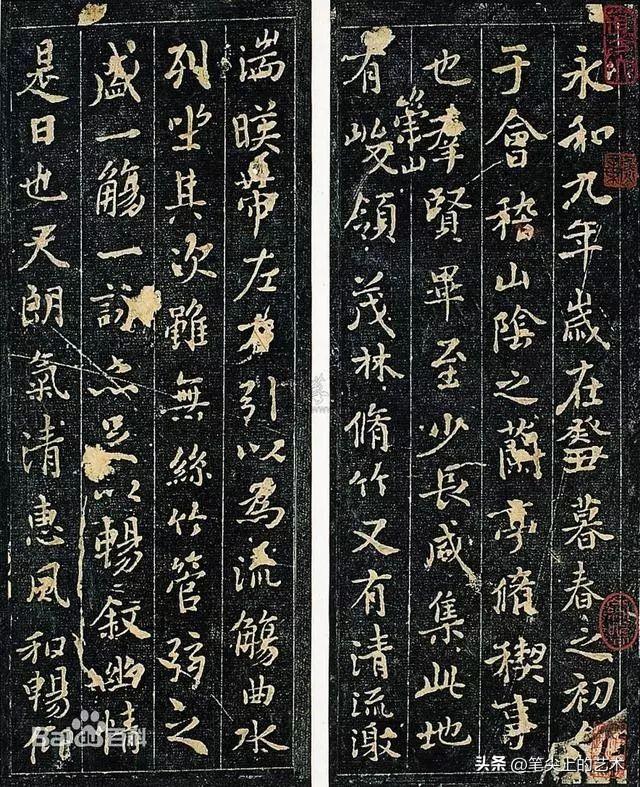 永和九年歲在癸丑暮春之初會
于會稽山陰之蘭亭脩稧事
也羣賢畢至少長咸集此地
有崇山峻領茂林脩竹又有清流激
湍暎帶左右引以為流觴曲水
列坐其次雖無絲竹管弦之
盛一觴一詠亦足以暢敘幽情
是日也天朗氣清惠風和暢仰
Baidu百科
头条 @笔尖上的艺术